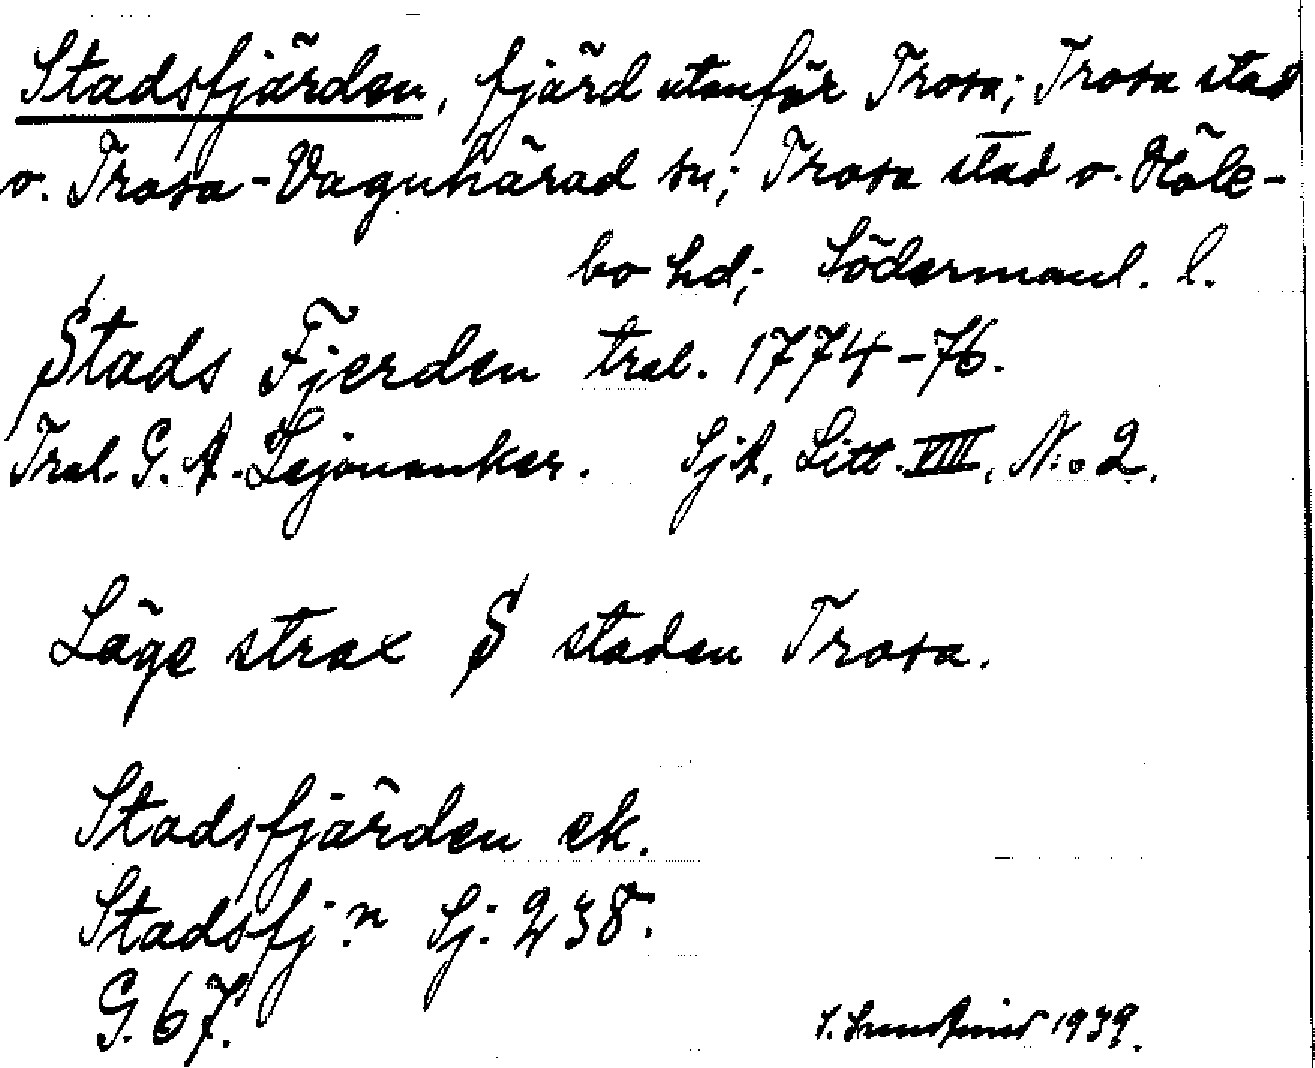 Stadsfjärden, fjärd utanför Trosa; Trosa stad
o. Trosa-Vagnhärad sn; Trosa stad o. Höle-
bo hd; Södermanl. l.
Stads Fjerden tral. 1774-76.
Tral. G. A. Lejonanker. SjA. Litt. VIII, N:o 2.
Läge strax S staden Trosa.
Stadsfjärden ek.
Stadsfj:n Sj: 238.
G. 67.
1939.